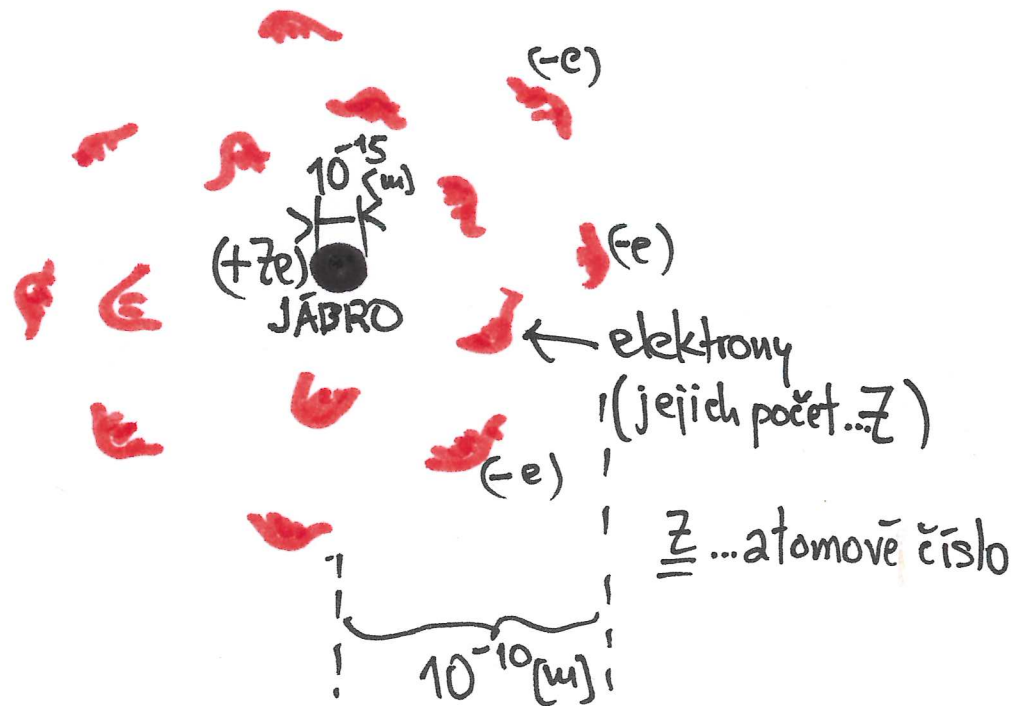 (-e)
10^-15
[m]
(+Ze)
JÁDRO
(-e)
elektrony
(jejich počet...Z)
(-e)
Z...atomové číslo
10^-10 [m]